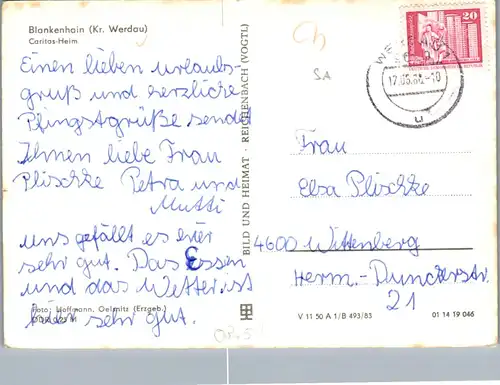 Blankenhain (Kr. Werdau)
Caritas-Heim
Einen lieben Urlaubs-
gruß und herzliche
Pfingstgrüße sendet
Ihnen liebe Frau
Plischke Petra und
Mutti
uns gefällt es hier
sehr gut. Das Essen
und das Wetter ist
hier sehr gut.
Foto: Hoffmann, Oelsnitz (Erzgeb.)
BILD UND HEIMAT · REICHENBACH (VOGTL)
SA
20
17.05.84-10
u
Frau
Elsa Plischke
4600 Wittenberg
Herm.-Dunckerstr.
21
V 11 50 A 1/B 493/83
01 14 19 046